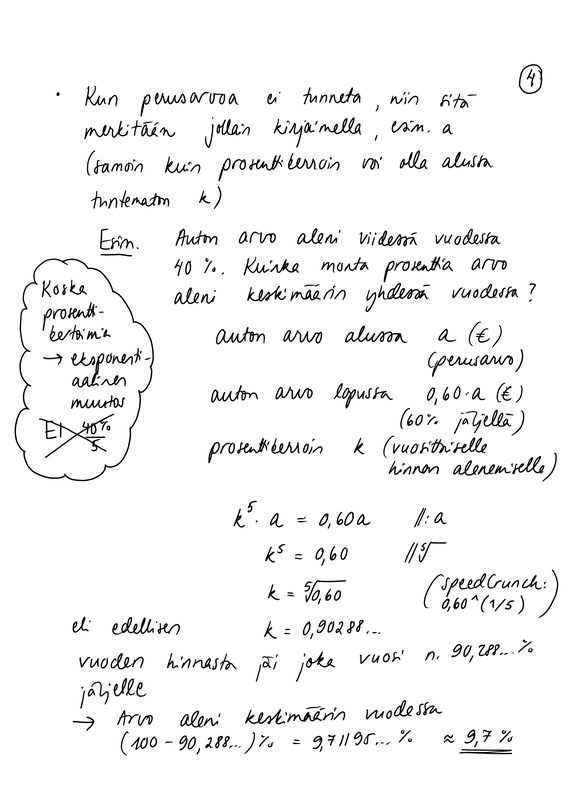 4
· Kun perusarvoa ei tunneta, niin sitä
merkitään jollain kirjaimella, esim. a
(samoin kuin prosenttikerroin voi olla alussa
tuntematon k)
Esim. Auton arvo aleni viidessä vuodessa
40 %. Kuinka monta prosenttia arvo
aleni keskimäärin yhdessä vuodessa?
Koska
prosentti-
kertoimia
→ eksponenti-
aalinen
muutos
EI 40% / 5
auton arvo alussa a (€)
(perusarvo)
auton arvo lopussa 0,60·a (€)
(60% jäljellä)
prosenttikerroin k (vuosittaiselle
hinnan alenemiselle)
k⁵· a = 0,60a //: a
k⁵ = 0,60 // ⁵√
k = ⁵√0,60 (SpeedCrunch:
0,60^(1/5))
eli edellisen k = 0,90288...
vuoden hinnasta jäi joka vuosi n. 90,288...%
jäljelle
→ Arvo aleni keskimäärin vuodessa
(100 - 90,288...)% = 9,71195... % ≈ 9,7 %